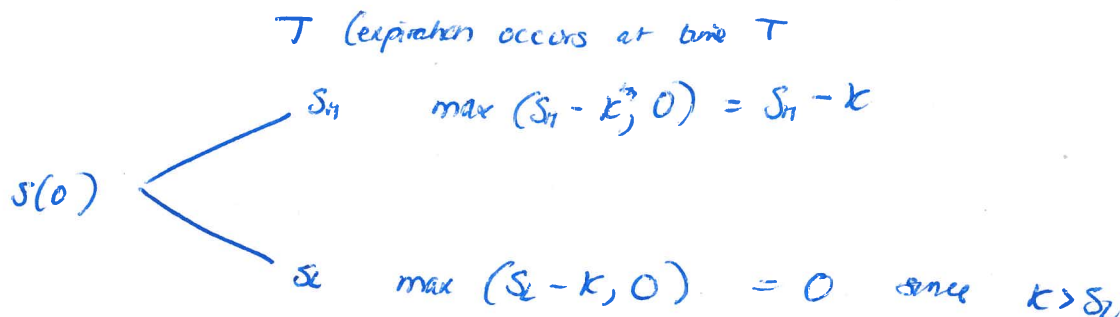 T (expiration occurs at time T
S_H max (S_H - K, 0) = S_H - K
S(0)
S_L max (S_L - K, 0) = 0 since K > S_L